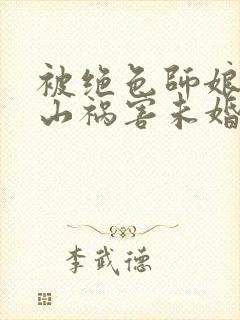 被绝色师娘
山祸害未婚
李武德